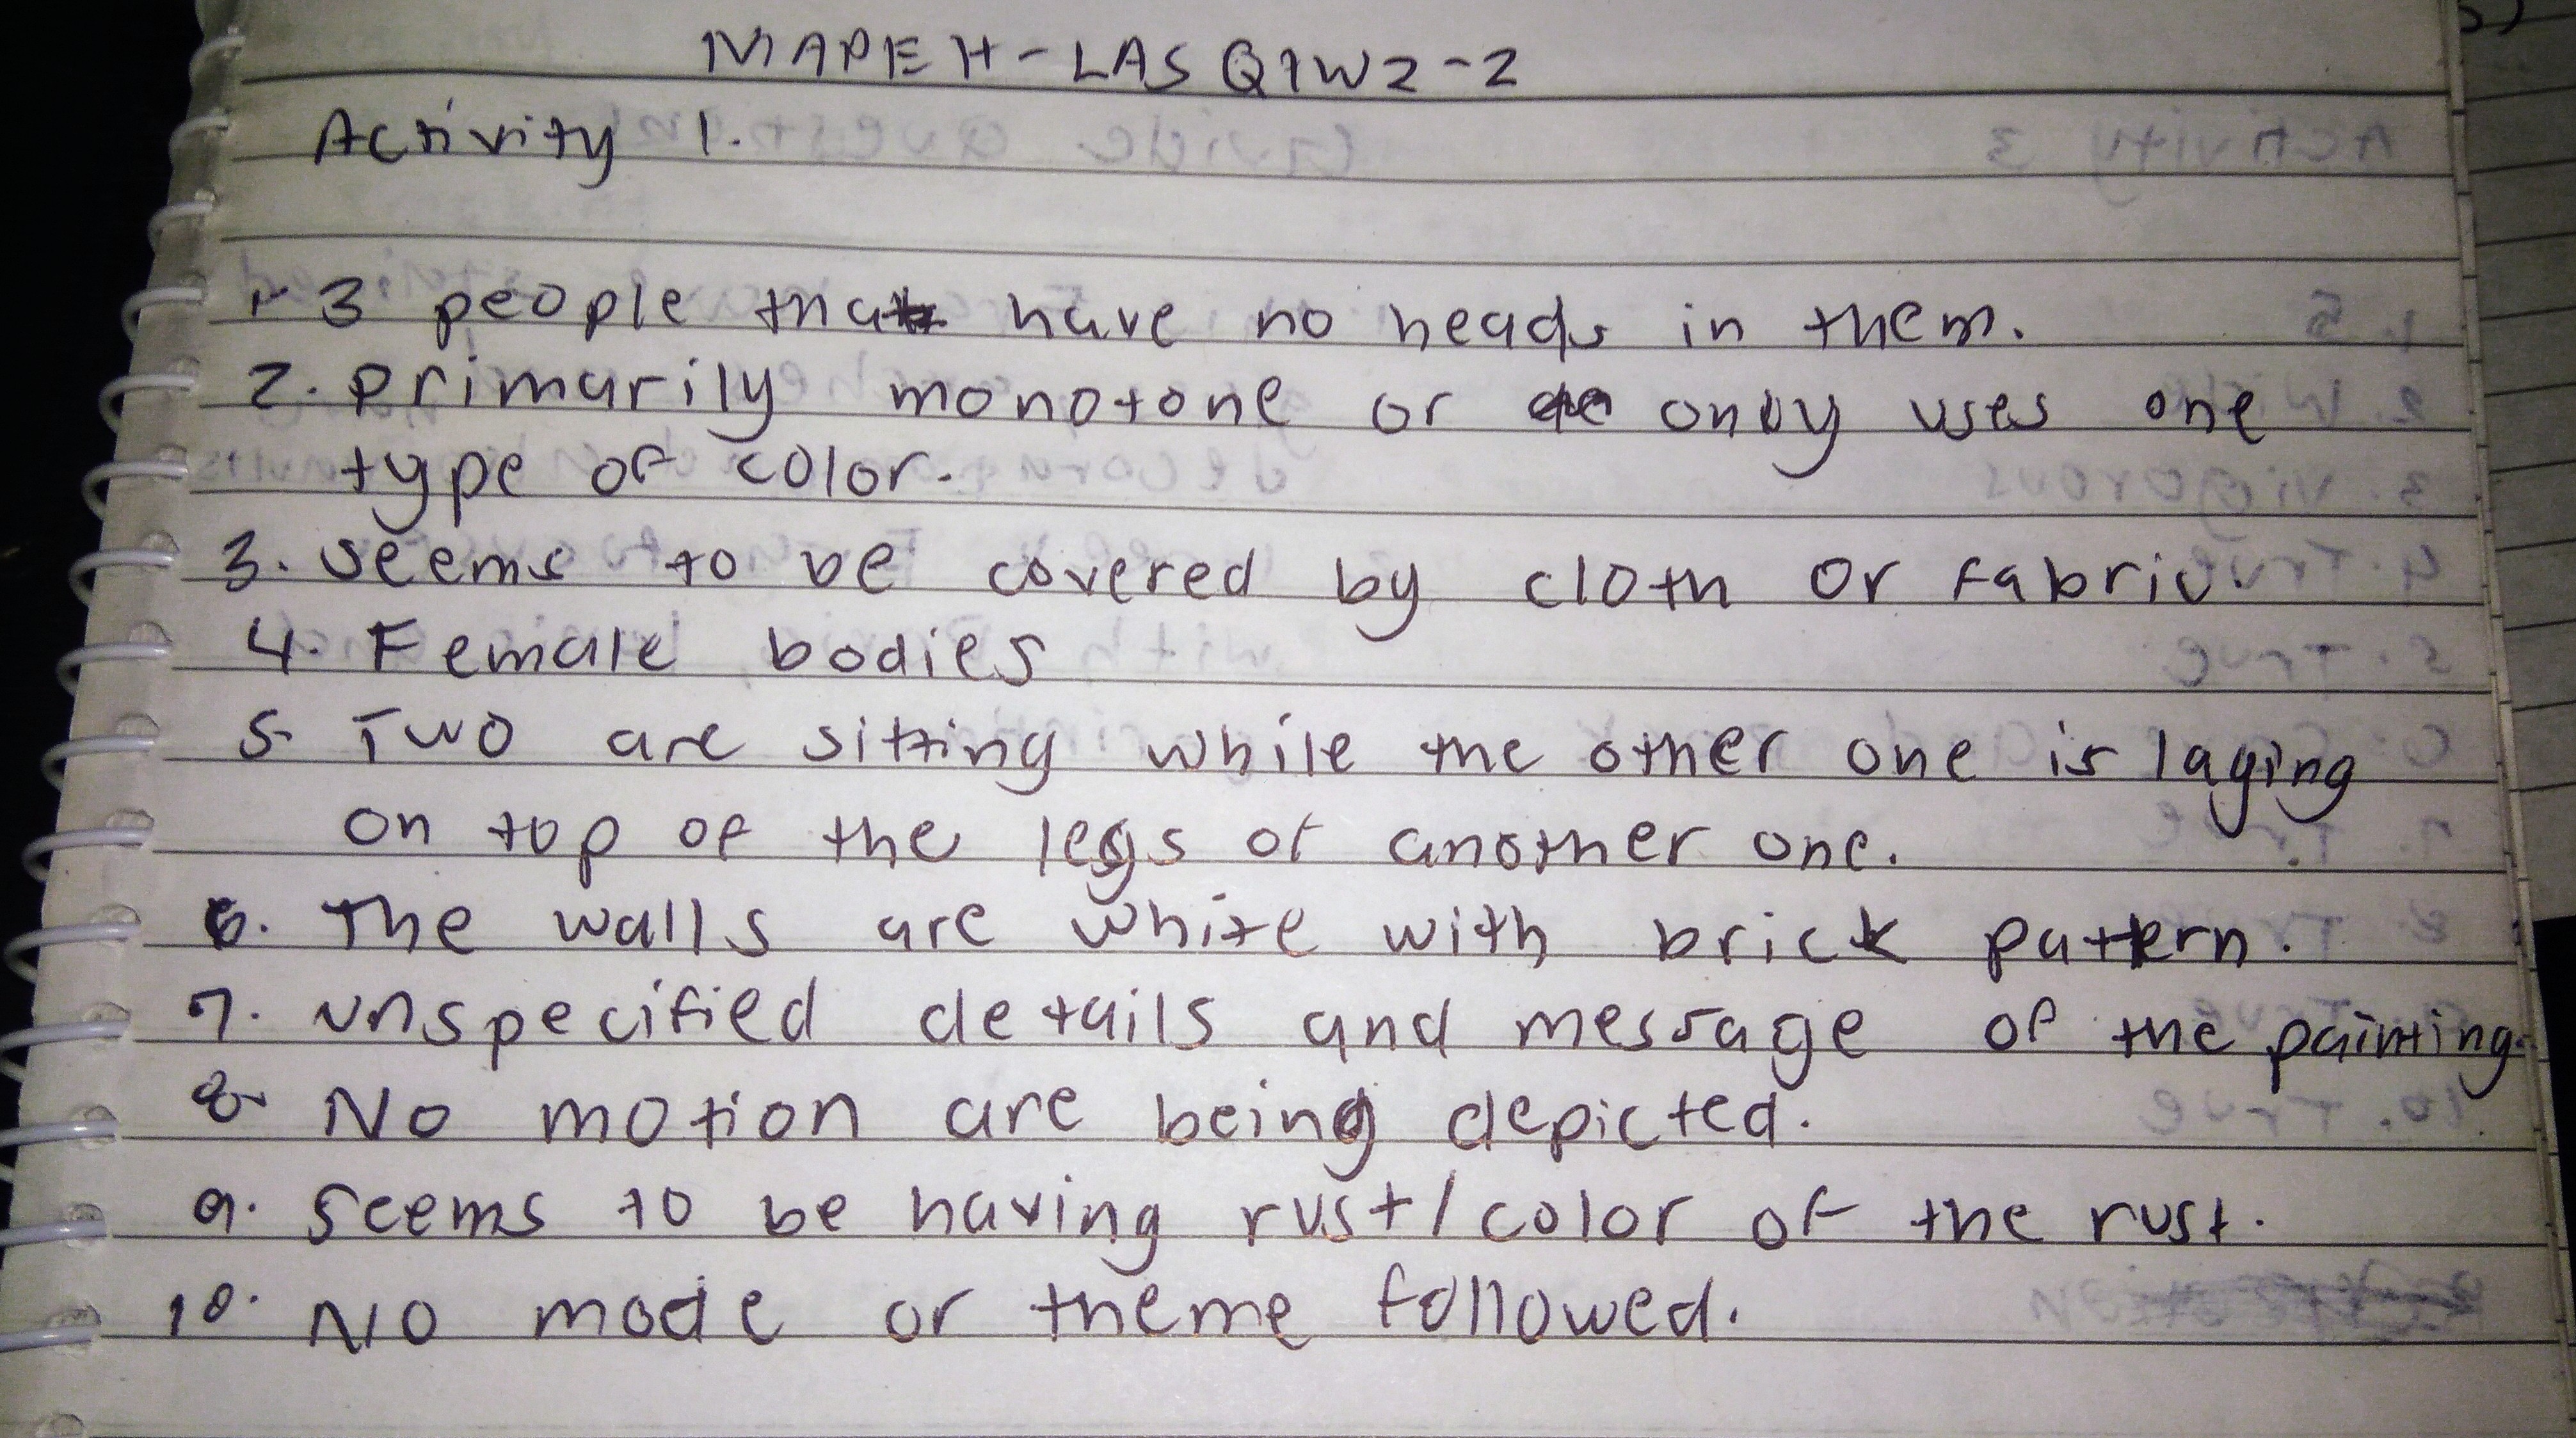 MAPEH-LAS Q1W2-2
Activity 1.
1. 3 people that have no heads in them.
2. primarily monotone or only uses one
type of color.
3. seems to be covered by cloth or fabric.
4. Female bodies
5. Two are sitting while the other one is laying
on top of the legs of another one.
6. The walls are white with brick pattern.
7. unspecified details and message of the painting.
8. No motion are being depicted.
9. seems to be having rust/color of the rust.
10. No mode or theme followed.